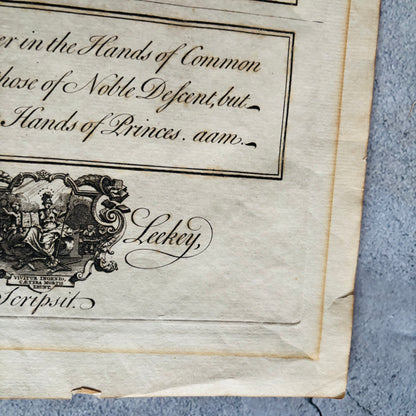 er in the Hands of Common
hose of Noble Descent, but
Hands of Princes. aam.
Leekey,
VIVITUR INGENIO,
CÆTERA MORTIS
ERUNT.
Scripsit.